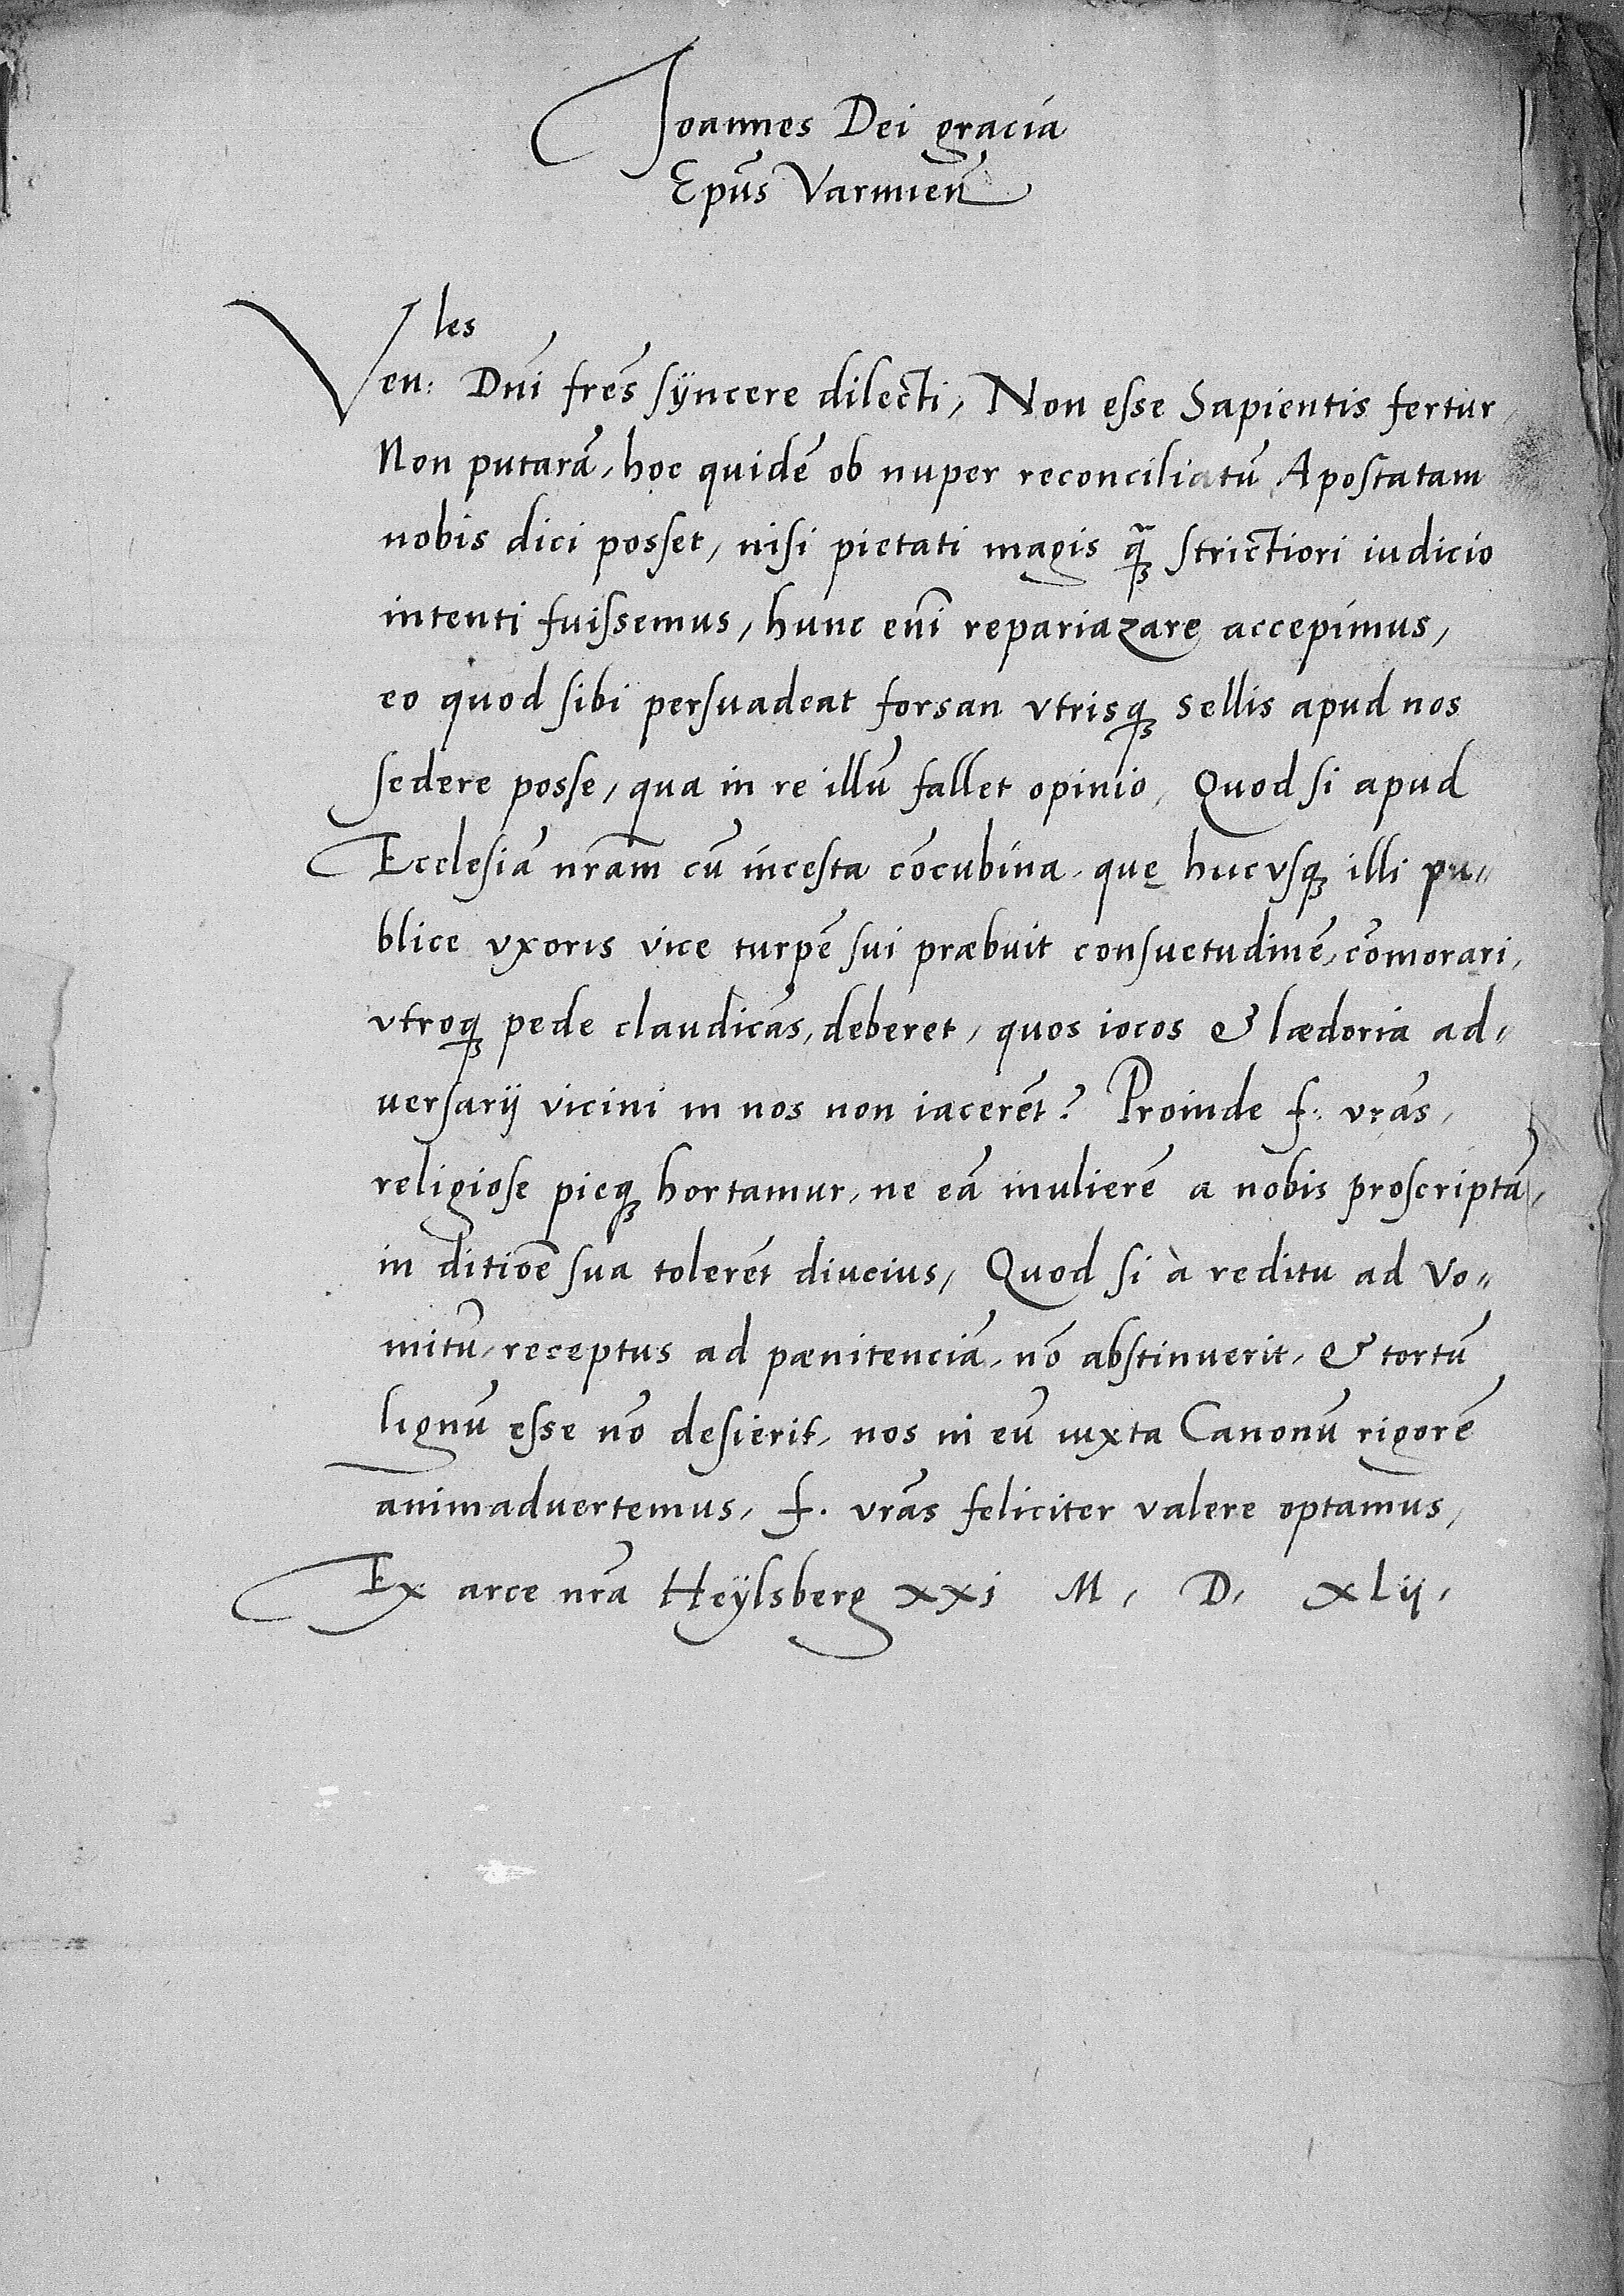 Joannes Dei gracia
Epūs Varmieñ
les
Ven: Dñi frẽs syncere dilecti, Non esse Sapientis fertur,
Non putarā, hoc quidē ob nuper reconciliatū Apostatam
nobis dici posset, nisi pietati magis ꝙ̃ strictiori iudicio
intenti fuissemus, hunc eñi repariazare accepimus,
eo quod sibi persuadeat forsan vtrisqꝫ sellis apud nos
sedere posse, qua in re illū fallet opinio, Quod si apud
Ecclesiā nr̄am cū incesta cōcubina, quę hucvsqꝫ illi pu„
blice vxoris vice turpē sui præbuit consuetudinē, cōmorari,
vtroqꝫ pede claudicās, deberet, quos iocos & lædoria ad„
uersarij vicini in nos non iacerēt? Proinde f: vr̄as,
religiose pieqꝫ hortamur, ne eā mulierē a nobis proscriptā,
in ditioē sua tolerēt diucius, Quod si à reditu ad vo„
mitū, receptus ad pænitenciā, nō abstinuerit, & tortū
lignū esse nō desierit, nos in eū iuxta Canonū rigorē
animaduertemus, f. vr̄as feliciter valere optamus,
Ex arce nr̄a Heÿlsberg xxj M, D, xLij,